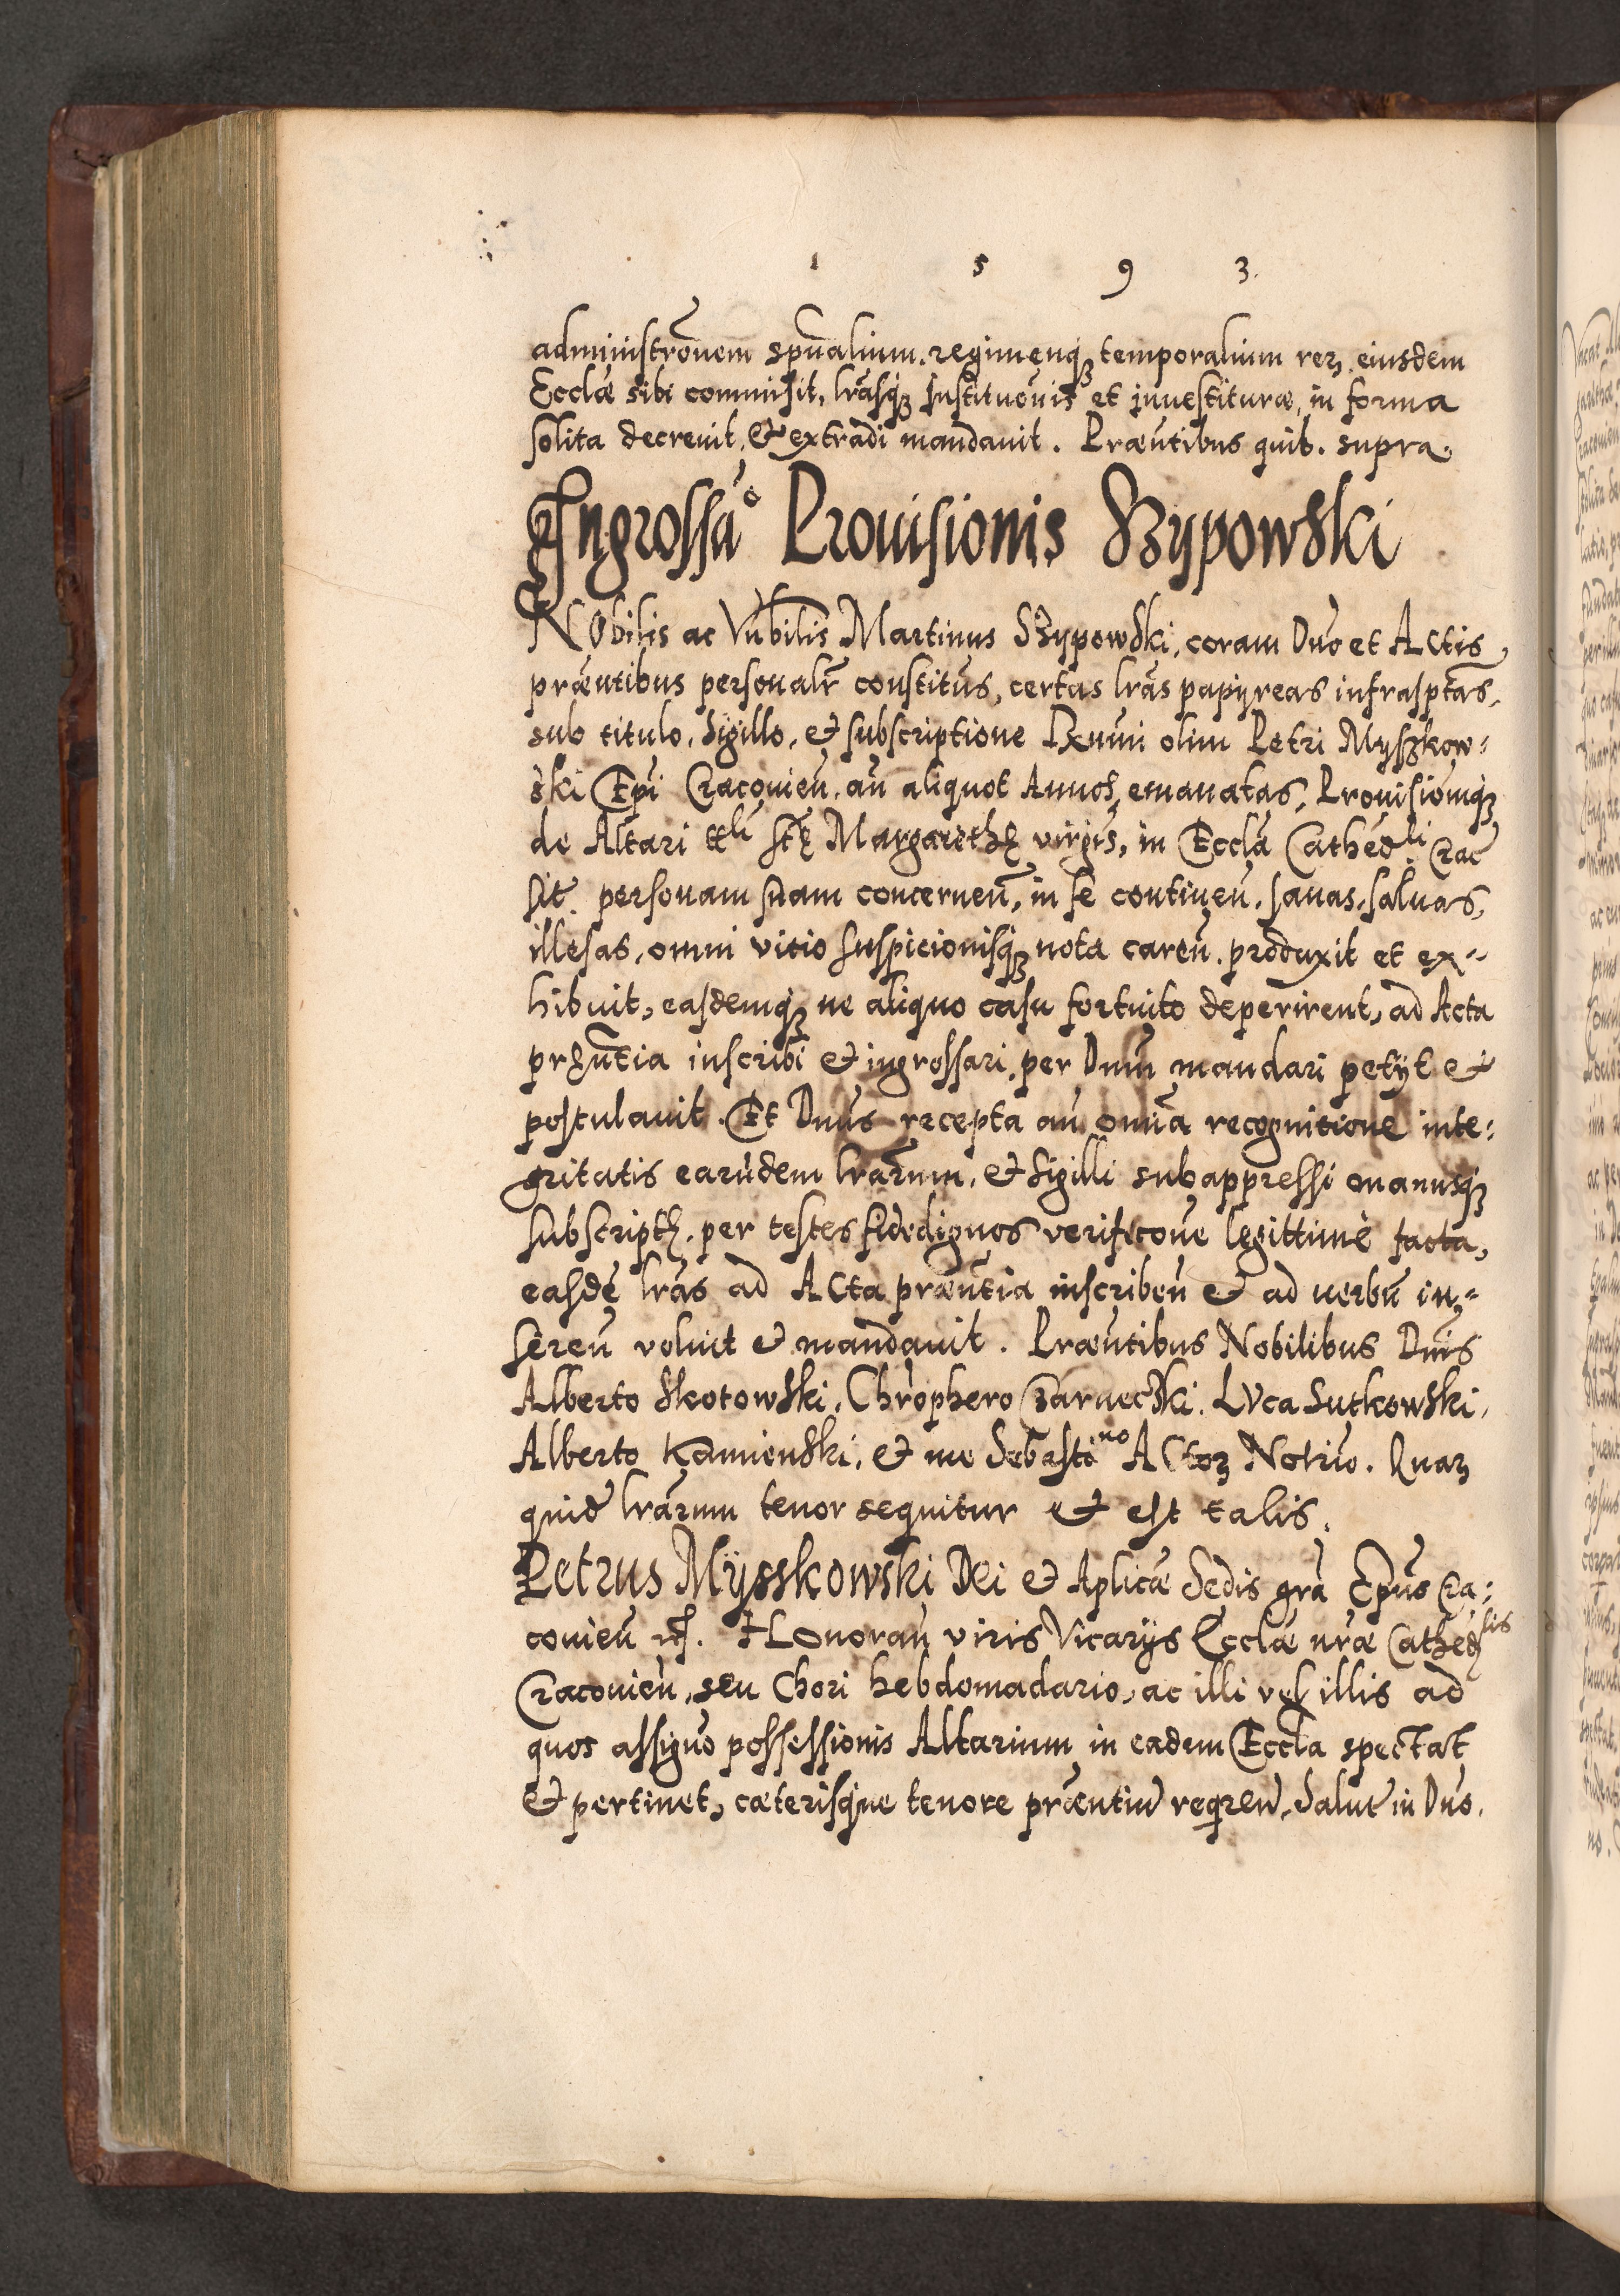 1 5 9 3.
administrõnem spũalium. regimenq₃ temporalium rer₃. eiusdem
Ecclæ sibi commisit, lrãsq₃ Institucõnis et inuestituræ, in forma
solita decreuit, & extradi mandauit. Præñtibus quib. supra.
Ingrossãº Prouisionis Szypowski
NObilis ac Vñbilis Martinus Szypowski, coram Dño et ACtis
præñtibus personalr̃ constitũs, certas lrãs papyreas infrasptãs,
sub titulo, Sigillo, & subscriptione Rx̃mi olim Petri Myszkow=
ski Epĩ Cracouieñ. añ aliquot Annos, emanatas, Prouisionemq₃
de Altari ttˡⁱ Stę Margarethę virgĩs, in Ecclã Cathedˡⁱ Crac̃
sit̃. personam suam concerneñ, in se contineñ. sanas, saluas,
illesas, omni vitio suspicionisq₃ nota careñ. produxit et ex=
hibuit, easdemq₃ ne aliquo casu fortuito deperirent, ad Acta
pręñtia inscribi & ingrossari, per Dnũm mandari petÿt &
postulauit. Et Dnũs recepta añ omñia recognitione inte=
gritatis earũdem lrãrum, & Sigilli subappressi manusq₃
subscriptę. per testes fidedignos verificõne legittimè facta,
easdẽ lrãs ad ACta præñtia inscribeñ & ad uerbũ in=
sereñ voluit & mandauit. Præñtibus Nobilibus Dnĩs
Alberto Skotowski, Chrõphero Czarnecki. LVca Sutkowski,
Alberto Kamienski, & me Sebastiⁿᵒ ACtor₃ Notrio. Quar₃
quid̃ lrãrum tenor sequitur & est talis.
Petrus Mÿsskowski Dei & Aplicæ Sedis grã Epũs Cra=
couieñ &c. HOnorañ viris Vicarÿs Ecclæ nræ Cathedˡⁱˢ
Cracouieñ, seu Chori hebdomadario, ac illi vel illis ad
quos assigñº possessionis Altarium in eadem Ecclã spectat
& pertinet, cæterisque tenore præñtiũ reqreñ, Salutẽ in Dño.